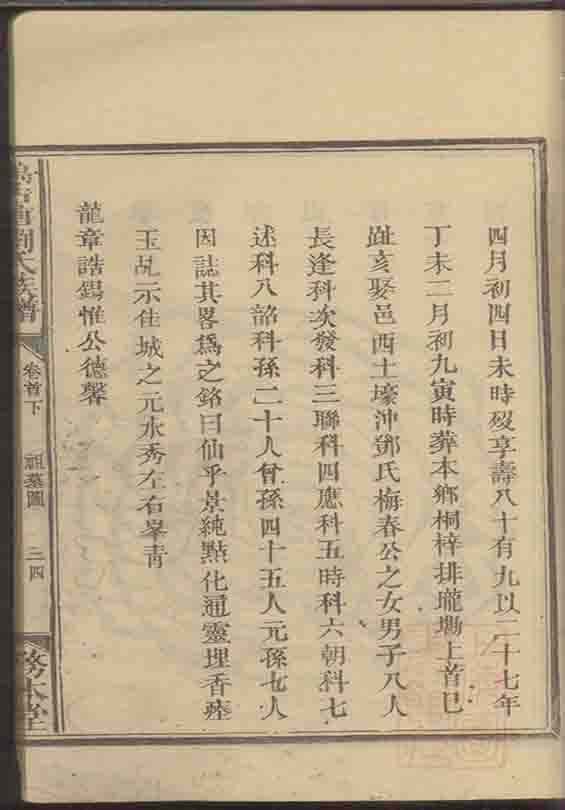 四月初四日未時歿享壽八十有九以二十七年
丁未二月初九寅時葬本鄉桐梓排瓏塝上首巳
趾亥娶邑西土壕沖鄧氏梅春公之女男子八人
長逢科次發科三聯科四應科五時科六朝科七
述科八韶科孫二十人曾孫四十五人元孫七人
因誌其畧爲之銘曰仙乎景純點化通靈埋香瘞
玉乩示佳城之元水秀左右峯青
龍章誥錫惟公德馨
氏族譜
卷首下
祖墓圖
三四
務本堂